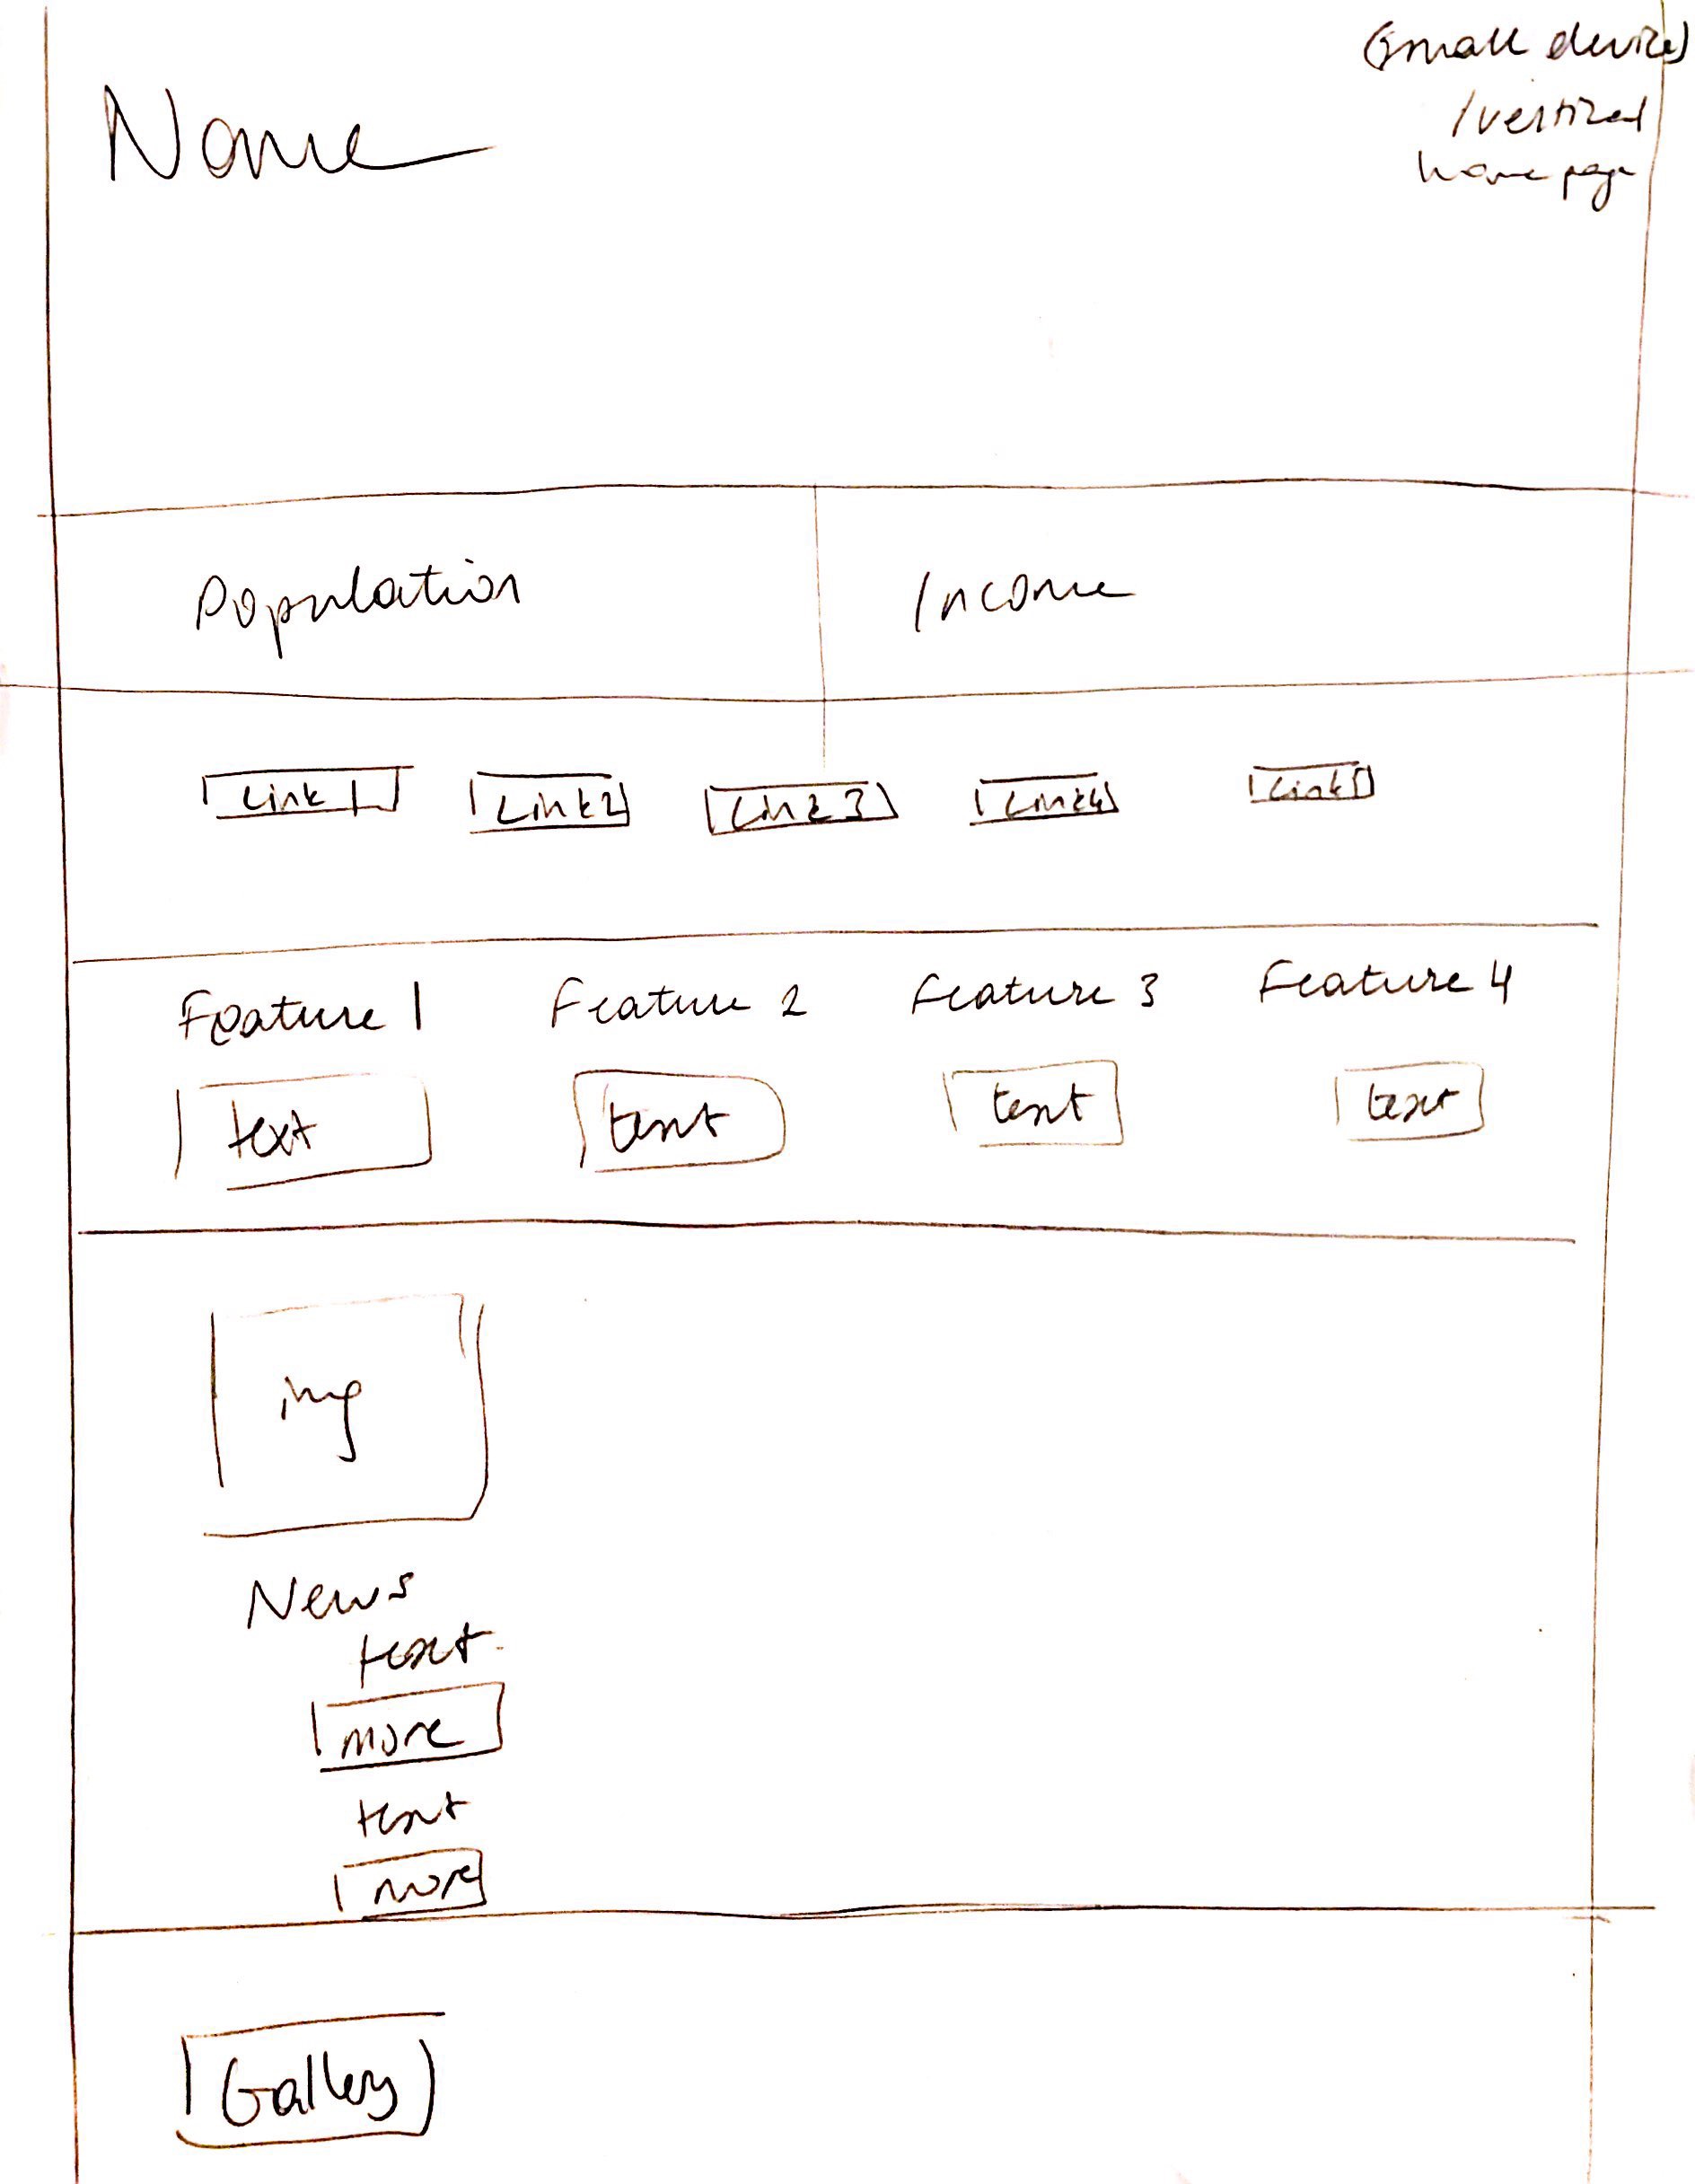 (small devices)
/vertical
home page
Name
Population Income
Link 1 Link2 Link 3 Link4 Link5
Feature 1 Feature 2 Feature 3 Feature 4
text text text text
img
News
text
more
text
more
Gallery